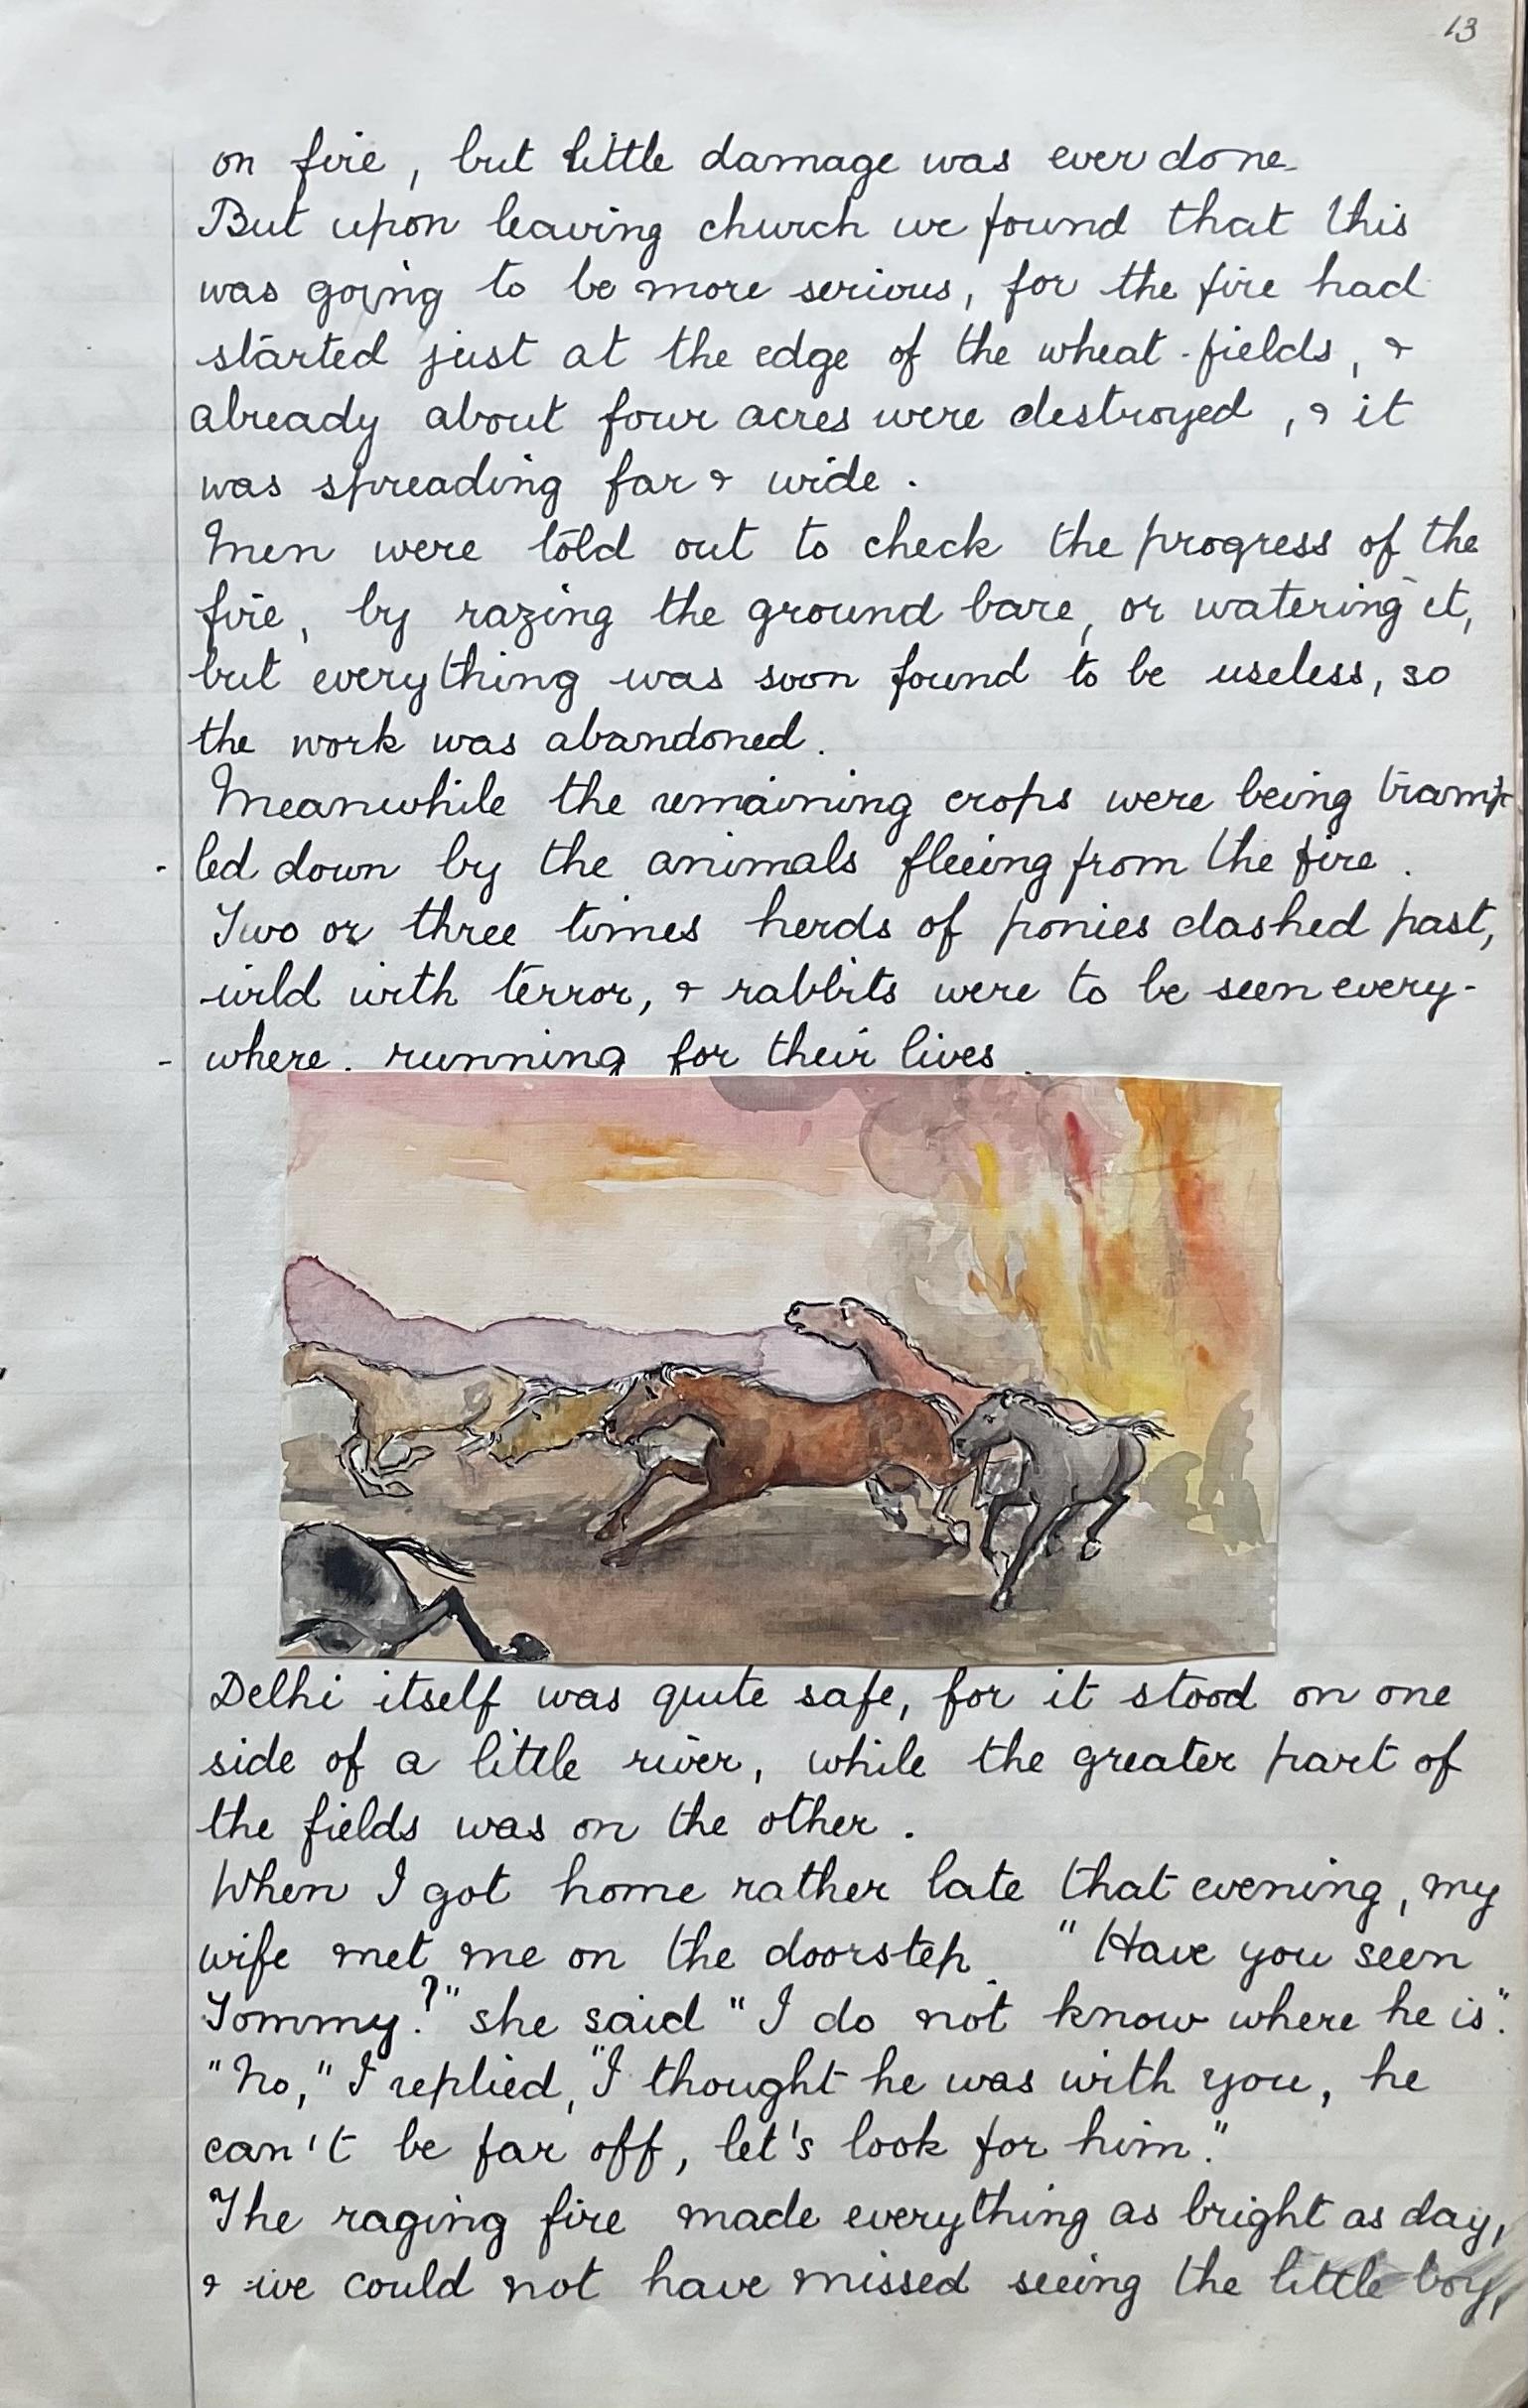 13
on fire, but little damage was ever done
But upon leaving church we found that this
was going to be more serious, for the fire had
started just at the edge of the wheat-fields, &
already about four acres were destroyed, & it
was spreading far & wide.
Men were told out to check the progress of the
fire, by razing the ground bare, or watering it,
but everything was soon found to be useless, so
the work was abandoned.
Meanwhile the remaining crops were being tramp-
-led down by the animals fleeing from the fire.
Two or three times herds of ponies dashed past,
wild with terror, & rabbits were to be seen every-
-where. running for their lives.
Delhi itself was quite safe, for it stood on one
side of a little river, while the greater part of
the fields was on the other.
When I got home rather late that evening, my
wife met me on the doorstep. "Have you seen
Tommy?" she said "I do not know where he is".
"No," I replied, "I thought he was with you, he
can't be far off, let's look for him."
The raging fire made everything as bright as day,
& we could not have missed seeing the little boy,